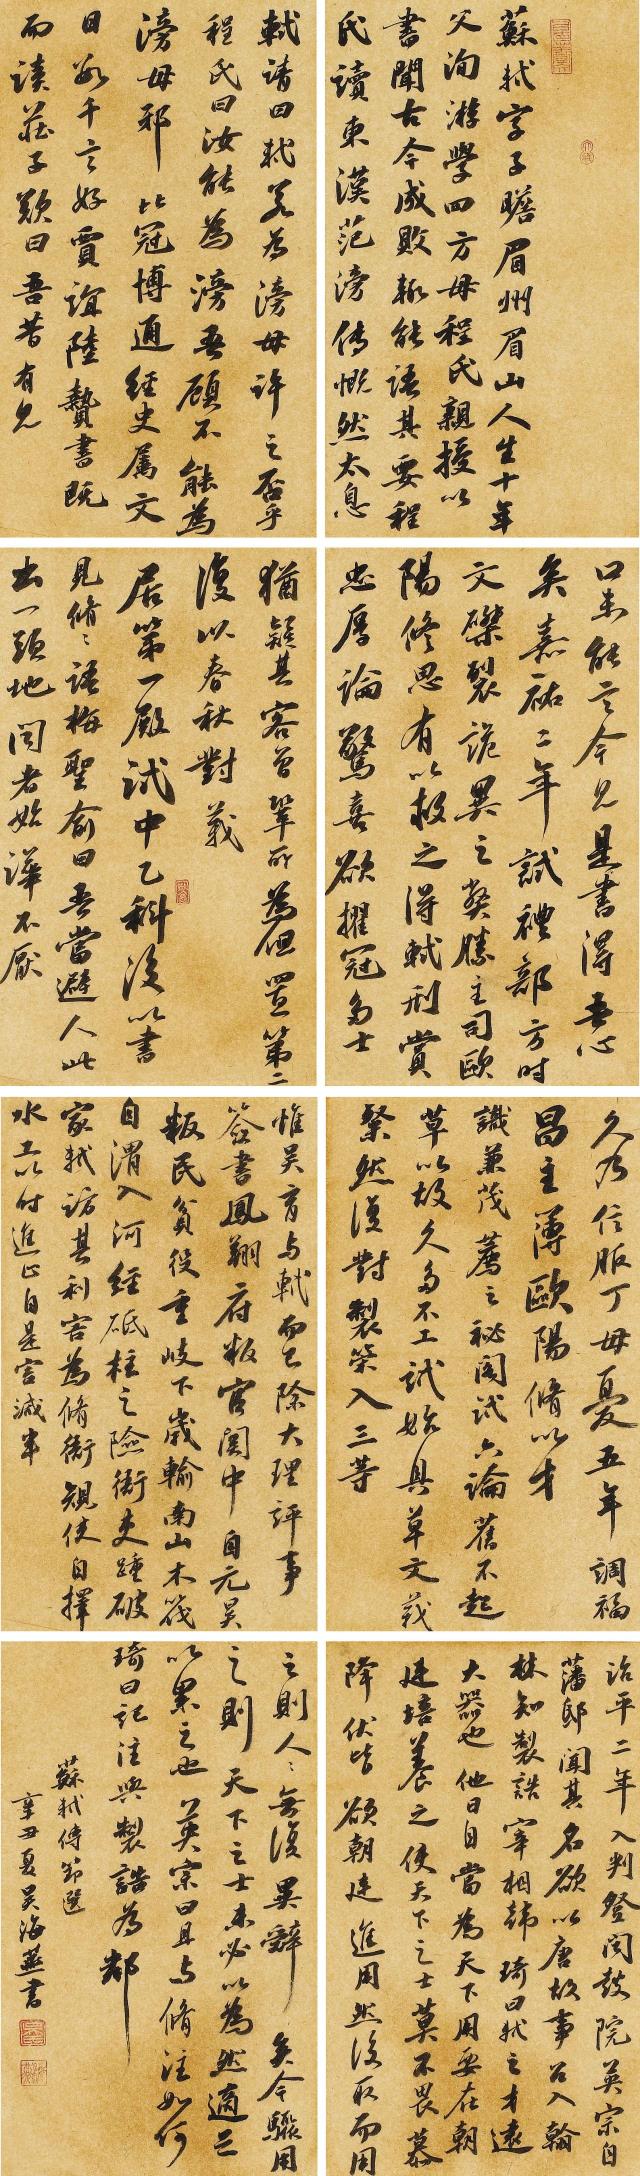 蘇軾字子瞻眉州眉山人生十年
父洵游學四方母程氏親授以
書聞古今成敗輒能語其要程
氏讀東漢范滂傳慨然太息
軾請曰軾若為滂母許之否乎
程氏曰汝能為滂吾顧不能為
滂母邪比冠博通經史屬文
日數千言好賈誼陸贄書既
而讀莊子歎曰吾昔有見
口未能言今見是書得吾心
矣嘉祐二年試禮部方時
文磔裂詭異之弊勝主司歐
陽修思有以救之得軾刑賞
忠厚論驚喜欲擢冠多士
猶疑其客曾鞏所為但置第二
復以春秋對義
居第一殿試中乙科後以書
見脩〻語梅聖俞曰吾當避人此
出一頭地聞者始譁不厭
久乃信服丁母憂五年調福
昌主薄歐陽脩以才
識兼茂薦之秘閣試六論舊不起
草以故久多不工試始具草文義
粲然復對製策入三等
惟吳育与軾而已除大理評事
簽書鳳翔府叛官関中自元昊
叛民貧役重岐下歲輸南山木筏
自渭入河經砥柱之險衙吏踵破
家軾訪其利害為脩衙規使自擇
水工以付進止自是害減半
治平二年入判登闻鼓院英宗自
藩邸聞其名欲以唐故事召入翰
林知製誥宰相韓琦曰軾之才遠
大器也他日自當為天下用要在朝
廷培養之使天下之士莫不畏慕
降伏皆欲朝廷進用然後取而用
之則人〻無復異辭矣今驟用
之則天下之士未必以為然適足
以累之也英宗曰且与脩注如何
琦曰記注與製誥為鄰
蘇軾傳節選
辛丑夏吳海燕書